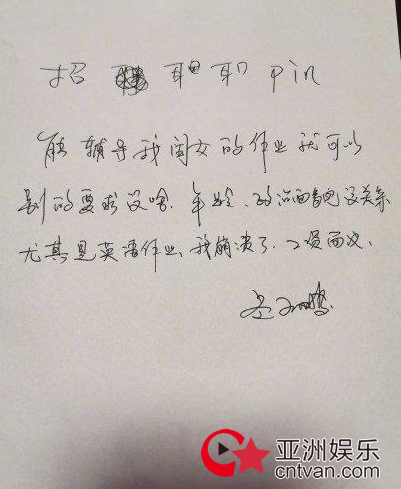 招 职 pin
能辅导我闺女的作业就可以
别的要求没啥.年龄、政治面貌没关系
尤其是英语作业、我崩溃了.工资面议.
亚洲娱乐
cntvan.com